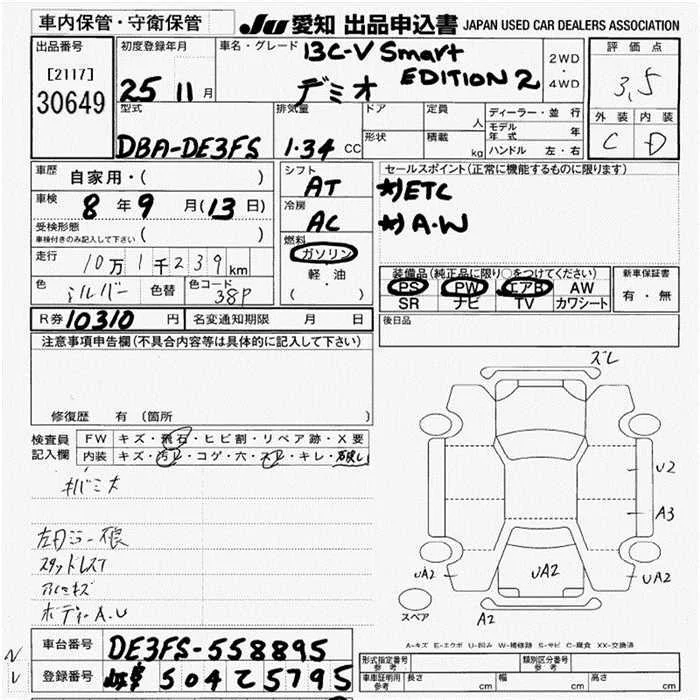 車内保管・守衛保管
JU 愛知 出品申込書 JAPAN USED CAR DEALERS ASSOCIATION
出品番号
[2117]
30649
初度登録年月
25 11 月
車名・グレード 13C-V Smart
EDITION 2
デミオ
2WD
・
4WD
評価点
3.5
外装 内装
C D
型式
DBA-DE3FS
排気量
1.34 CC
ドア
定員
人
形状
積載
kg
ディーラー・並行
モデル年式 年
ハンドル 左・右
車歴
自家用・( )
車検
8 年 9 月(13 日)
受検形態
車検付きのみ記入して下さい ( )
走行
10万1千239km
色
シルバー
色替
色コード
38P
シフト
AT
冷房
AC
燃料
ガソリン
軽・油
( )
セールスポイント(正常に機能するものに限ります)
*)ETC
*)A・W
装備品(純正品に限り○をつけてください)
PS PW エアB AW
SR ナビ TV カワシート
新車保証書
有・無
R券 10310 円
名変通知期限 月 日
後日品
注意事項申告欄(不具合内容等は具体的に記入して下さい)
修復歴 有 (箇所 )
検査員
記入欄
FW キズ・飛石・ヒビ割・リペア跡・X要
内装 キズ・汚レ・コゲ・穴・スレ・キレ・破レ
スタッドレス
アルミキズ
ボディーA.U
ズレ
U2
A3
UA2
UA2
UA2
A2
スペア
A-キズ E-エクボ U-凹み W-補修跡 S-サビ C-腐食 XX-交換済
車台番号
DE3FS-558895
登録番号
岐阜 504 て 5795
形式指定番号
参考
類別区分番号
参考
車庫証明用
参考
長さ cm
幅 cm
高さ cm